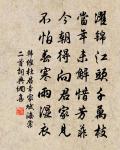 濯錦江頭千萬枝
當年未解惜芳菲
今朝得向君家見
不怕春寒雨濕衣
韓維杜居幸家賦海棠
二首詞典網集